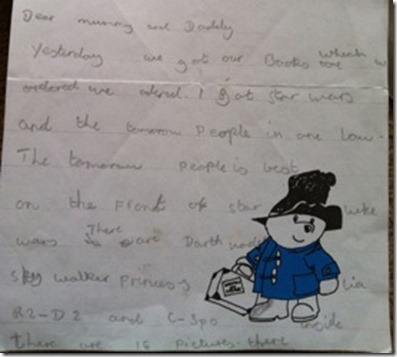 Dear mummy and Daddy
Yesterday we got our Books which
ordered we ordered. I got star wars
and the tomorow People in one
The tomorrow People is best
on the Front of star luke
wars There are Darth
sky walker Princess lia
R2-D2 and C-3po inside
there are 15 Pictures there